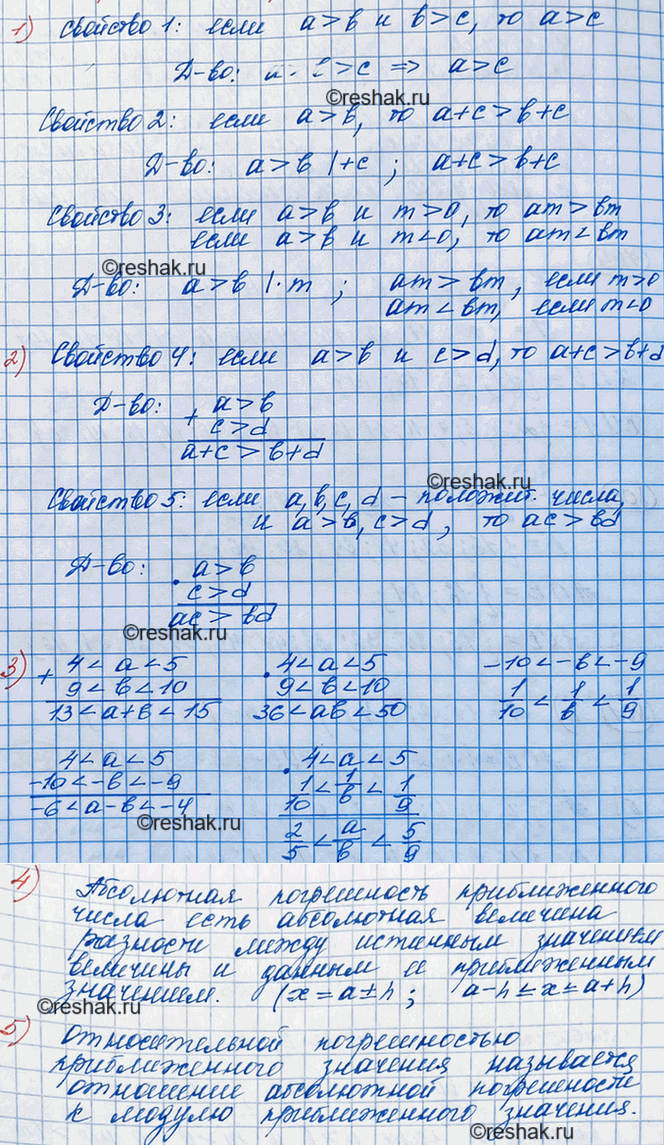 1) Свойство 1: если a>b и b>c, то a>c
Д-во: >c => a>c
©reshak.ru
Свойство 2: если a>b, то a+c>b+c
Д-во: a>b |+c ; a+c>b+c
Свойство 3: если a>b и m>0, то am>bm
если a>b и m<0, то am<bm
©reshak.ru
Д-во: a>b |·m ; am>bm, если m>0
am<bm, если m<0
2) Свойство 4: если a>b и c>d, то a+c>b+d
Д-во: a>b
+ c>d
a+c>b+d
©reshak.ru
Свойство 5: если a,b,c,d – положит. числа,
и a>b, c>d, то ac>bd
Д-во: a>b
· c>d
ac>bd
©reshak.ru
3) + 4<a<5 · 4<a<5 -10<-b<-9
9<b<10 9<b<10 1/10<1/b<1/9
13<a+b<15 36<ab<50
4<a<5 · 4<a<5
-10<-b<-9 1/10<1/b<1/9
-6<a-b<-4 2/5<a/b<5/9
©reshak.ru
4) Абсолютная погрешность приближенного
числа есть абсолютная величина
разности между истинным значением
величины и данным ее приближенным
значением. (x=a±h; a-h≤x≤a+h)
5) Относительной погрешностью
приближенного значения называется
отношение абсолютной погрешности
к модулю приближенного значения.